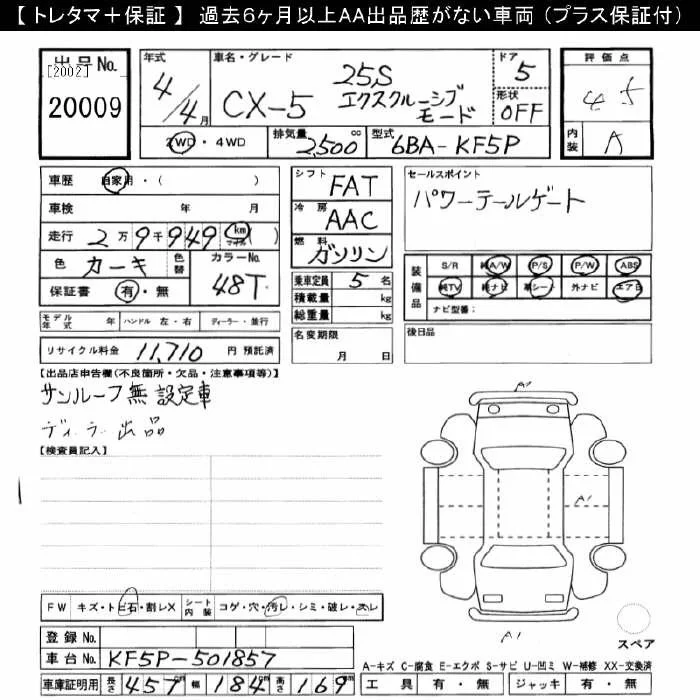 【 トレタマ＋保証 】 過去6ヶ月以上AA出品歴がない車両（プラス保証付）
出品No.
[2002]
20009
年式
4/4月
車名・グレード
CX-5 25S エクスクルーシブモード
ドア
5
形状
OFF
評価点
4.5
内装
A
2WD・4WD
排気量
2,500cc
型式
6BA-KF5P
車歴 自家用・( )
車検 年 月
走行 2万9千949 km マイル ( )
色 カーキ 色替
カラーNo.
48T
保証書 有・無
シフト
FAT
冷房
AAC
燃料
ガソリン
乗車定員 5 名
積載量 kg
総重量 kg
セールスポイント
パワーテールゲート
装備品
S/R 純A/W P/S P/W ABS
純TV 純ナビ 革シート 外ナビ エアB
ナビ型番：
モデル年式 年 ハンドル 左・右 ディーラー・並行
リサイクル料金 11,710 円 預託済
名変期限
月 日
後日品
【出品店申告欄(不良箇所・欠品・注意事項等)】
サンルーフ無設定車
ディーラー出品
【検査員記入】
A1
A1
A1
FW キズ・トビ石・割レX シート内装 コゲ・穴・汚レ・シミ・破レ・スレ
登録No.
車台No. KF5P-501857
車庫証明用 長さ 457cm 幅 184cm 高さ 169cm
スペア
A-キズ C-腐食 E-エクボ S-サビ U-凹ミ W-補修 XX-交換済
工具 有・無 ジャッキ 有・無